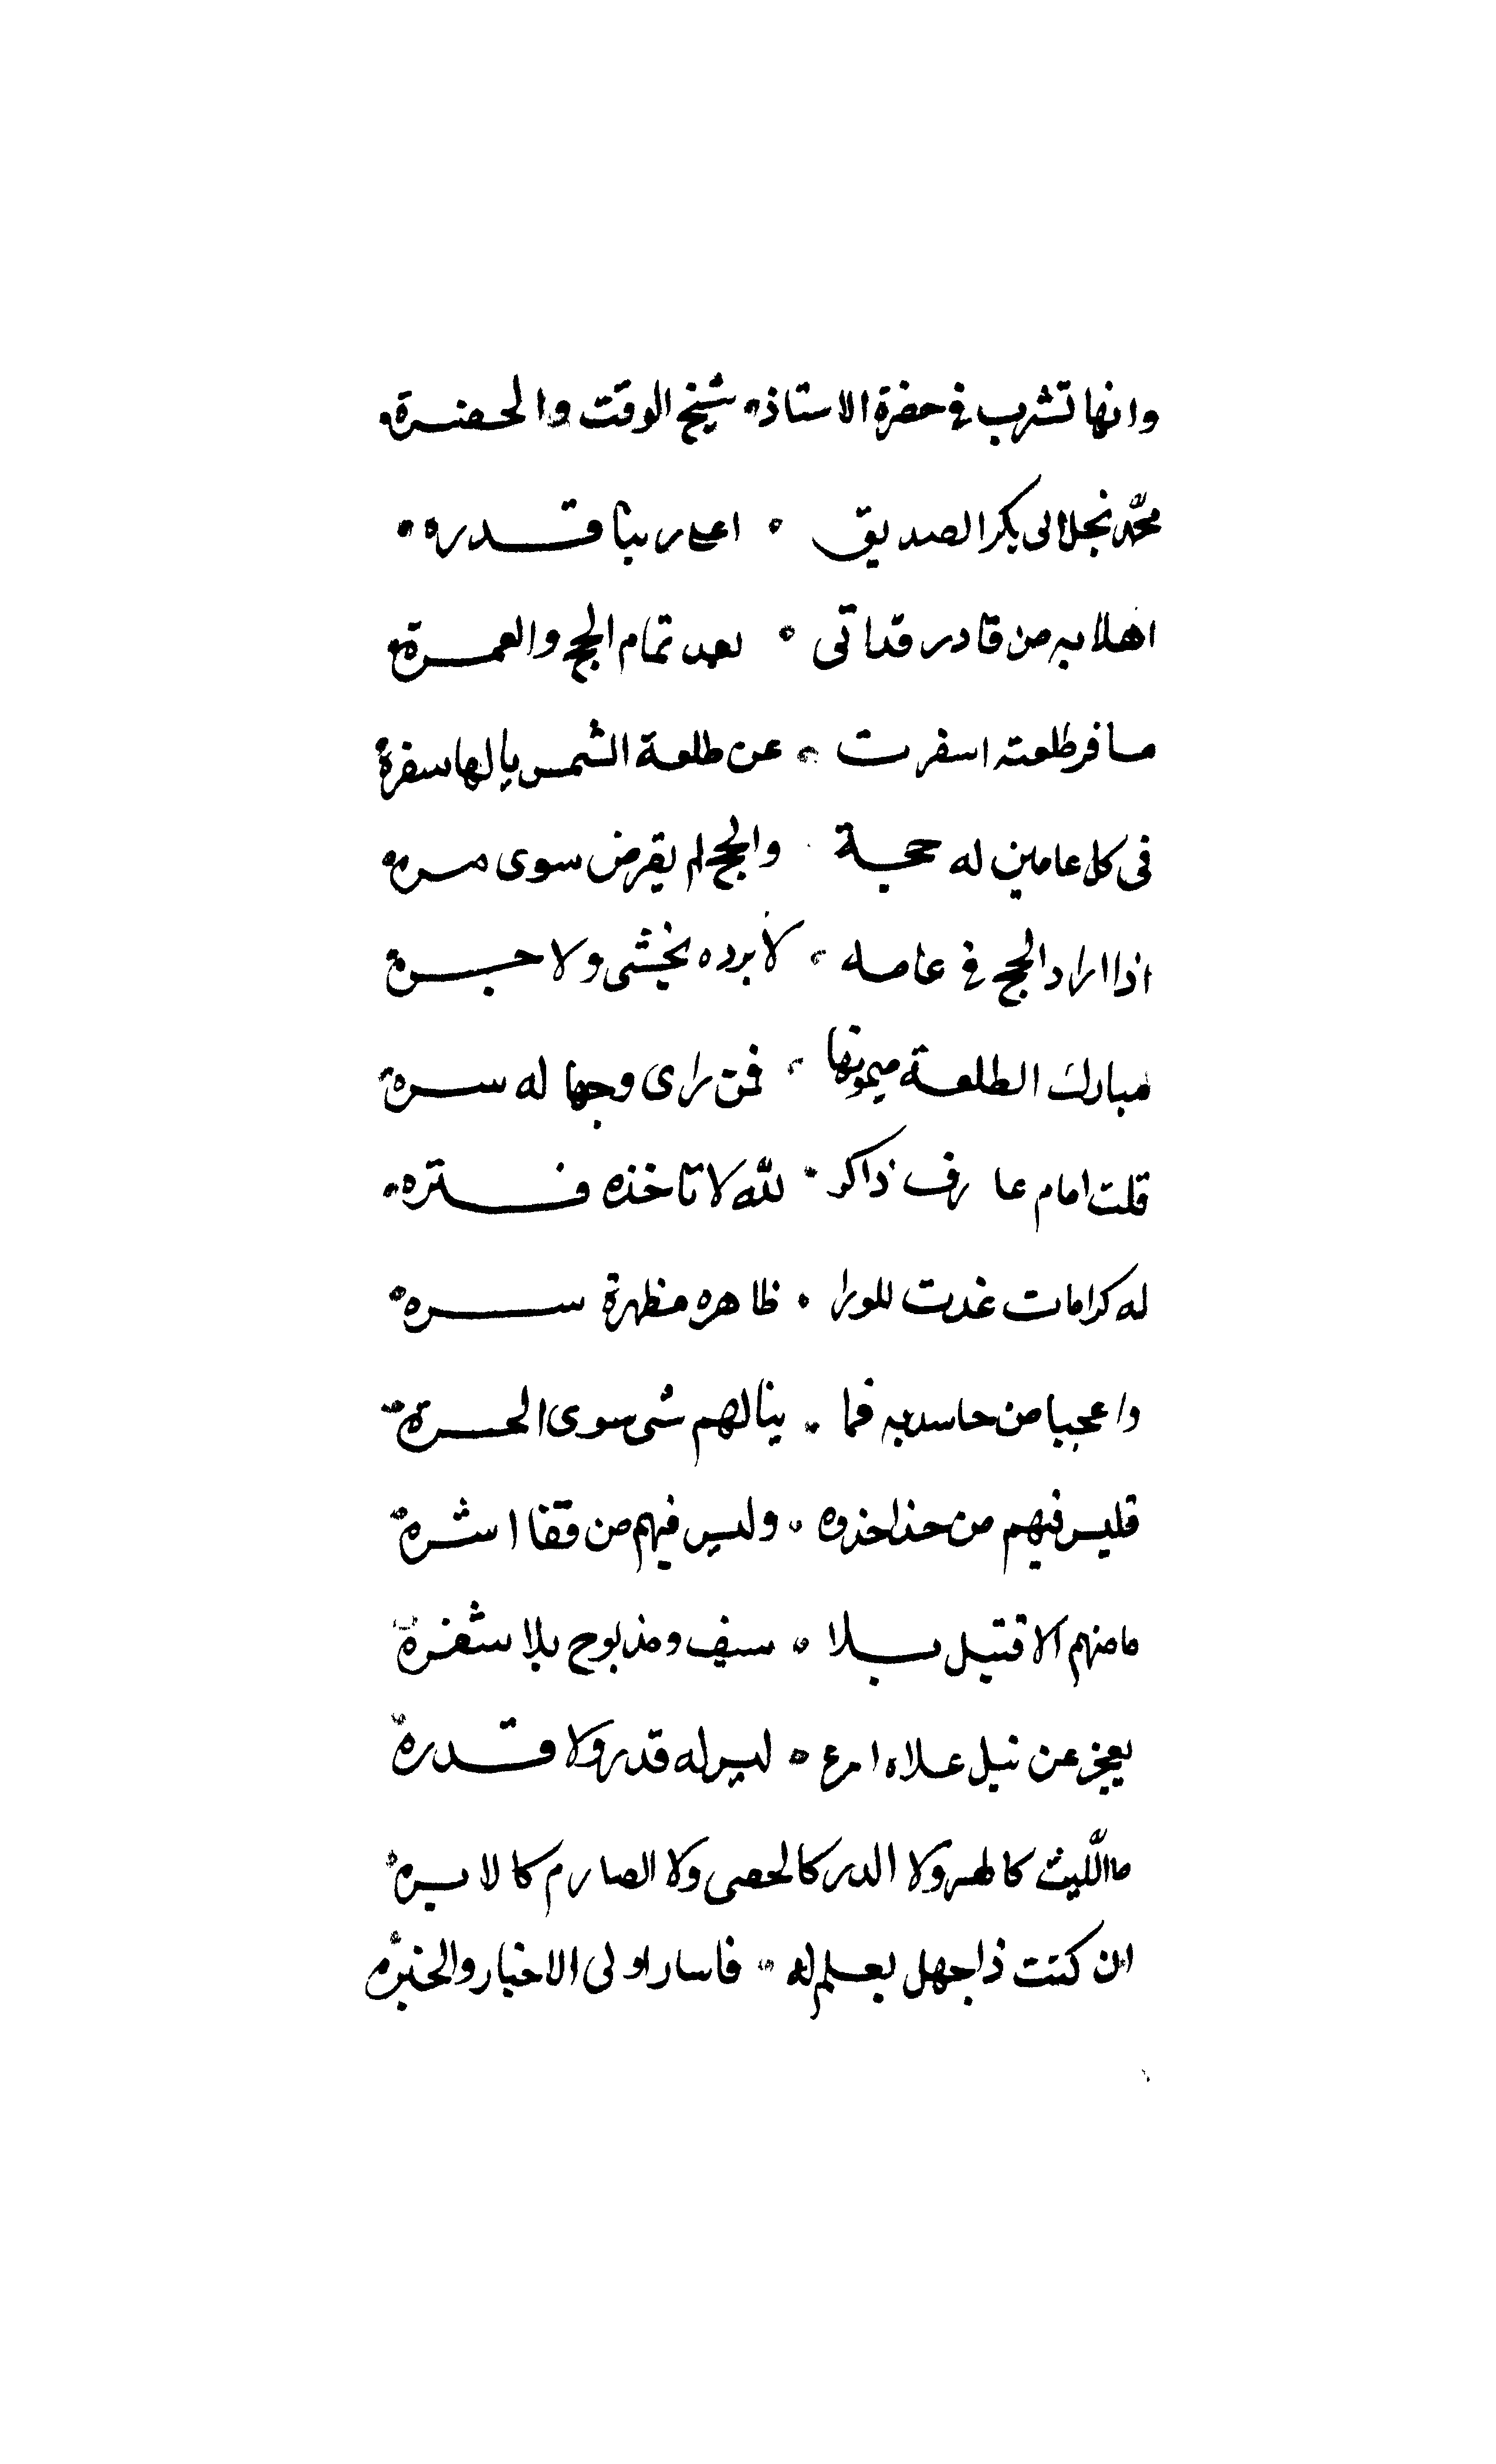 وانها تشرب في حضرة الاستاذ شيخ الوقت والحضرة
محمد نجل ابى بكر الصديق اعلى ربنا قدره
اهلا به من قادر قد اتى بعد تمام الحج والعمرة
مسافر طلعته اسفرت عن طلعة الشمس يا لها سفرة
فى كل عامين له حجة والحج لم يفرض سوى مره
اذا اراد الحج في عامه لا برده يخشى ولا حره
مبارك الطلعة ميمونها فمن راى وجها له سره
قلت امام عارف ذاكر لله لا تاخذه فتره
له كرامات غدت للورا ظاهره مظهرة سره
واعجبا من حاسديه فما ينالهم شى سوى الحسرة
فليس فيهم من حذا حذوه وليس فيهم من قفا اثره
ما منهم الا قتيل بلا سيف ومذبوح بلا شفرة
يعجز عن نيل علاه امرء ليس له قدر ولا قدرة
ما الليث كالهر ولا الدر كالحصى ولا الصارم كالابرة
ان كنت ذا جهل بعلم له فاسال اولى الاخبار والخبره